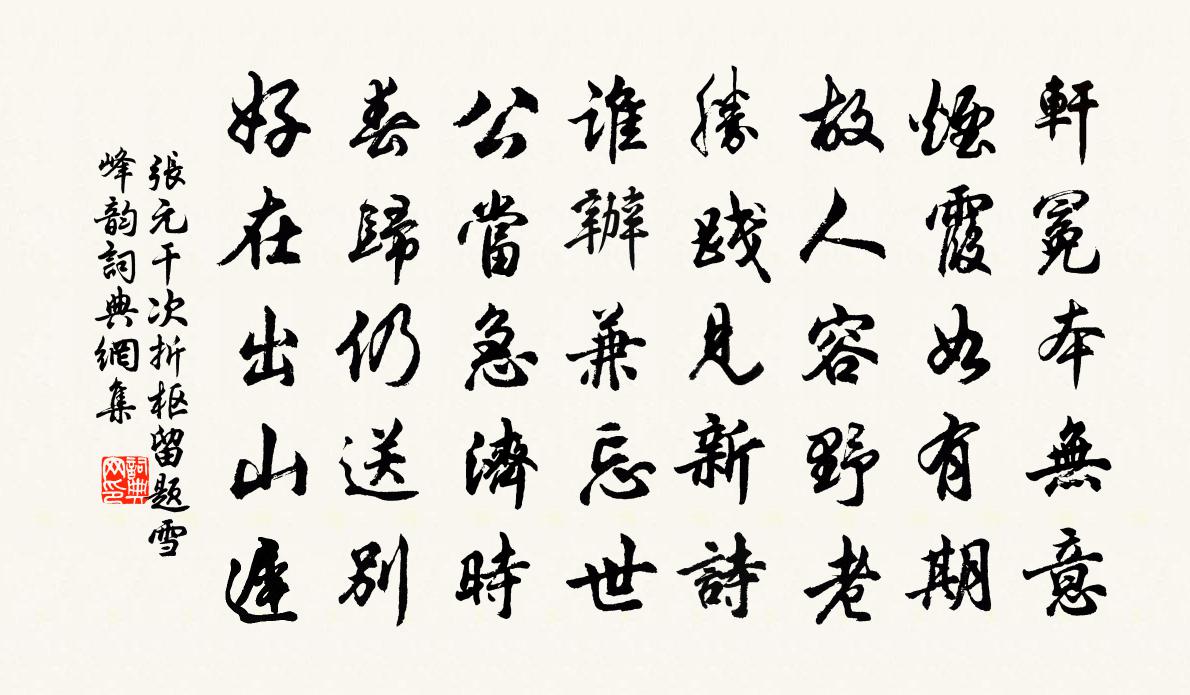 軒冕本無意
煙霞如有期
故人容野老
勝踐見新詩
誰辦兼忘世
公當急濟時
春歸仍送別
好在出山遲
張元干次折枢留題雪
峰韵詞典網集
詞典
网印